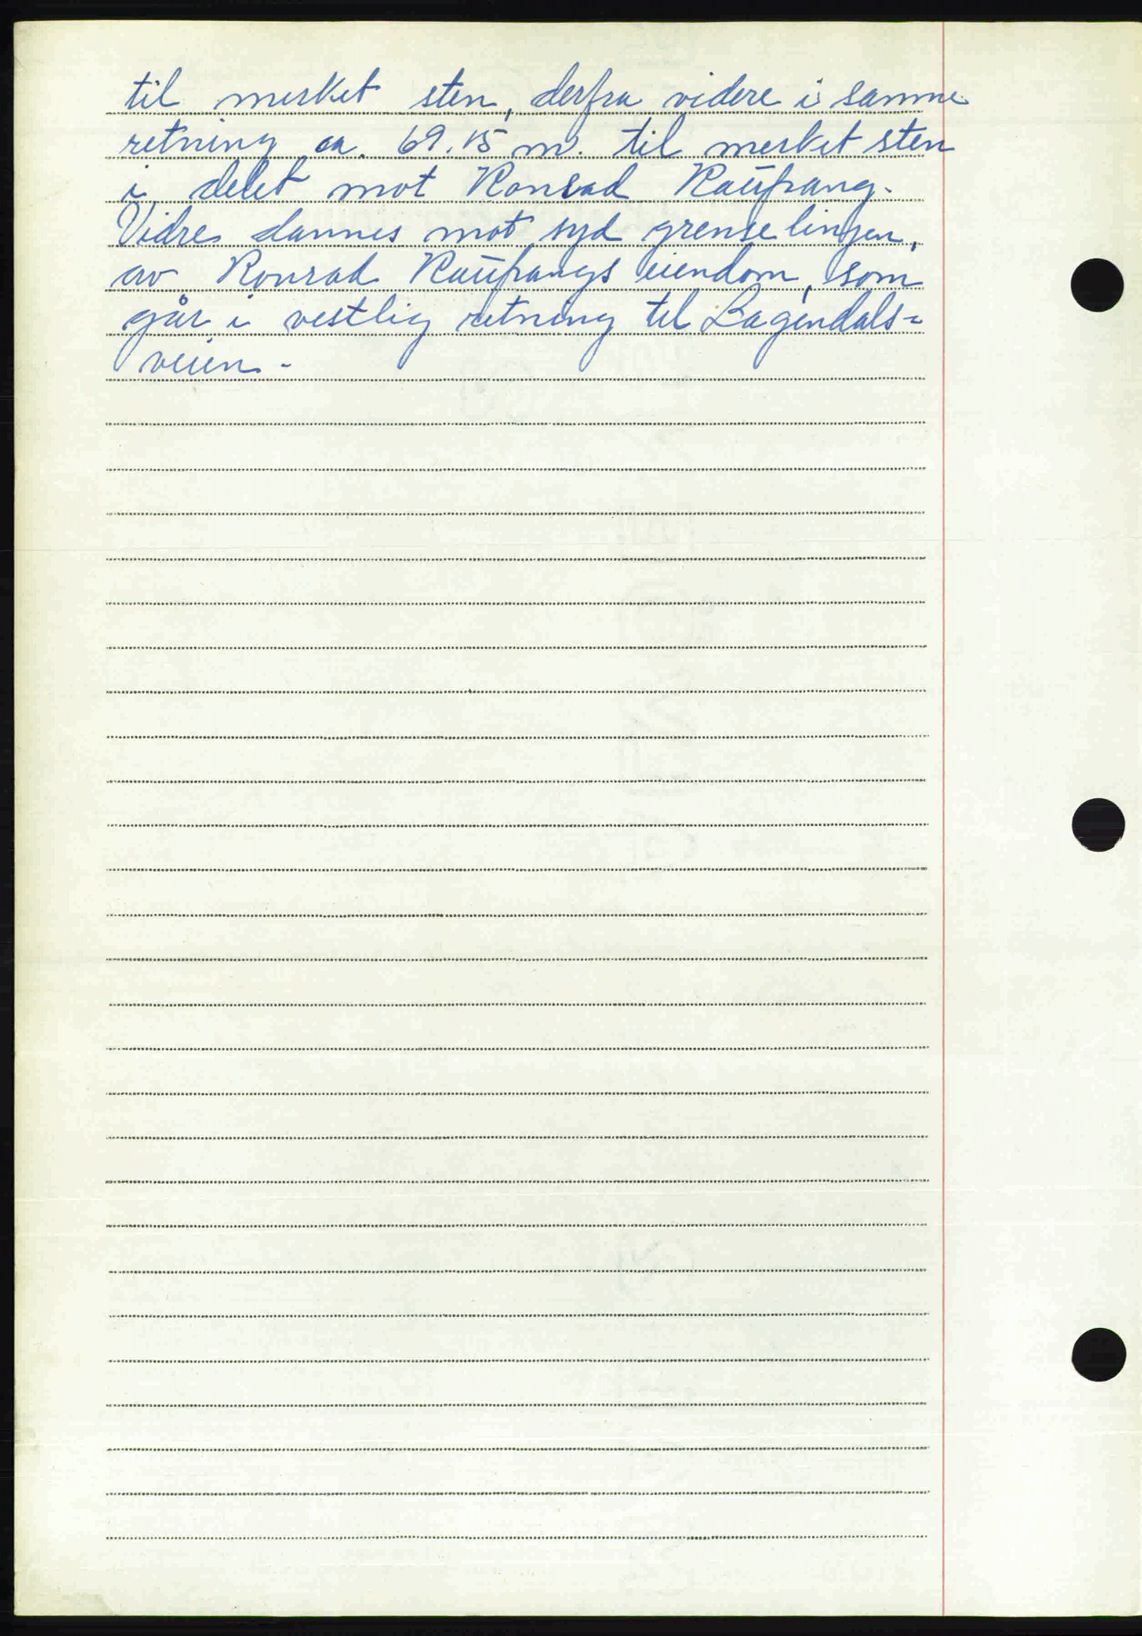 til merket sten, derfra videre i samme
retning ca. 69.15 m. til merket sten
i delet mot Konrad Kaupang.
Vidre dannes mot syd grenselinjen,
av Konrad Kaupangs eiendom, som
går i vestlig retning til Lågendals=
veien.-